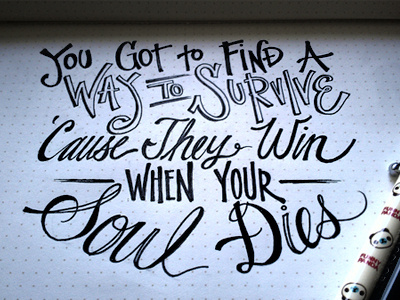 You Got to Find A
Way to Survive
'Cause They Win
When Your
Soul Dies